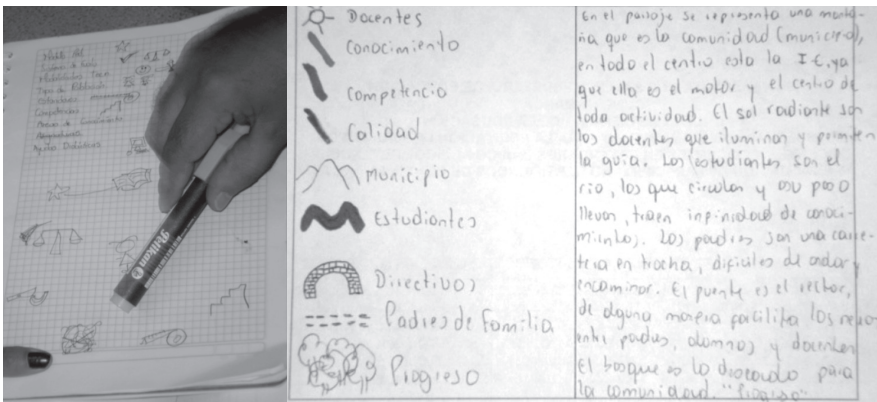 Modelo
Tipo de Población
Competencias
Pelikan
Docentes
Conocimiento
Competencia
Calidad
Municipio
Estudiantes
Directivos
Padres de Familia
Progreso
En el paisaje se representa una monta-
ña que es la comunidad (municipio),
en todo el centro esta la I.E, ya
que ella es el motor y el centro de
toda actividad. El sol radiante son
los docentes que iluminan y permiten
la guia. Los estudiantes son el
rio, los que circulan y a su paso
llevan, traen infinidad de conoci-
mientos. Los padres son una carre-
tera en trocha, dificiles de andar y
encaminar. El puente es el rector,
de alguna manera facilita los
entre padres, alumnos y docentes
El bosque es lo deseado para
la comunidad. "Progreso"